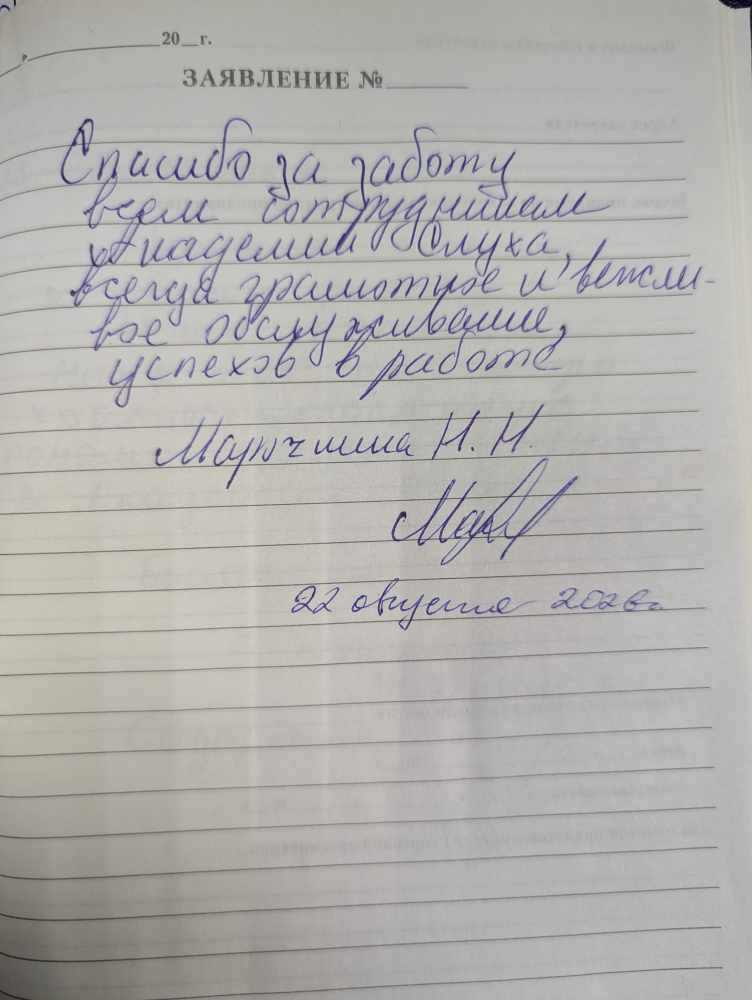 20__г.
ЗАЯВЛЕНИЕ №______
Спасибо за заботу
всем сотрудникам
Академии Слуха,
всегда грамотное и вежли-
вое обслуживание,
успехов в работе
Н. Н.
22 августа